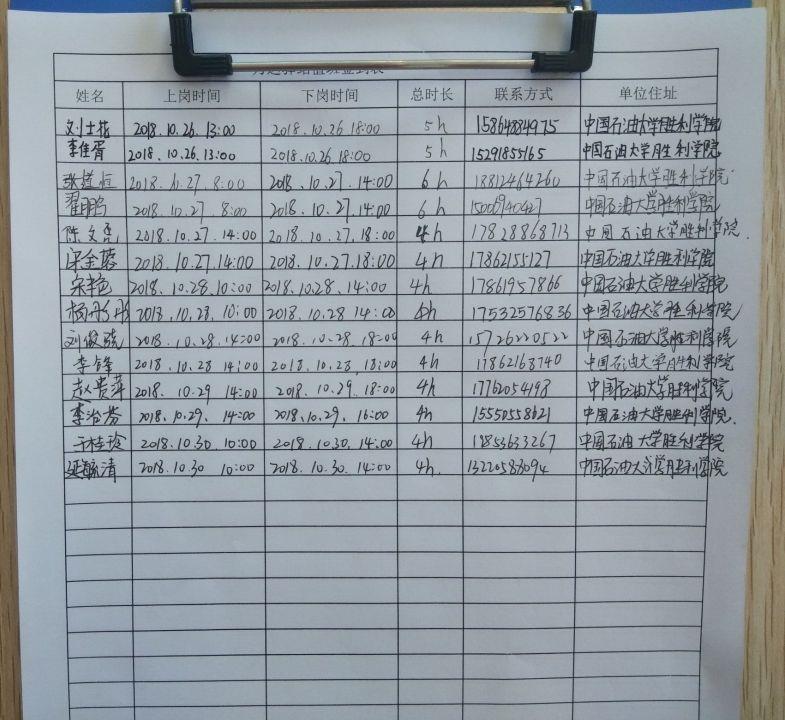 姓名 上岗时间 下岗时间 总时长 联系方式 单位住址
刘士花 2018.10.26.13:00 2018.10.26 18:00 5h 15864884975 中国石油大学胜利学院
李佳胥 2018.10.26.13:00 2018.10.26 18:00 5h 15291855165 中国石油大学胜利学院
2018.10.27.8:00 2018.10.27.14:00 6h 18812464260 中国石油大学胜利学院
翟鹏 2018.10.27.8:00 2018.10.27.14:00 6h 中国石油大学胜利学院
陈文亮 2018.10.27.14:00 2018.10.27.18:00 4h 17828868713 中国石油大学胜利学院.
宋金蓉 2018.10.27.14:00 2018.10.27.18:00 4h 17862155127 中国石油大学胜利学院
宋艳 2018.10.28.10:00 2018.10.28.14:00 4h 17861957866 中国石油大学胜利学院
杨丹彤 2018.10.28.10:00 2018.10.28 14:00 4h 17532576836 中国石油大学胜利学院
刘俊骁 2018.10.28.14:00 2018.10.28.18:00 4h 15726220522 中国石油大学胜利学院
李锋 2018.10.28 14:00 2018.10.28.18:00 4h 17862168740 中国石油大学胜利学院
赵贵萍 2018.10.29 14:00 2018.10.29.18:00 4h 17762054198 中国石油大学胜利学院
李治芬 2018.10.29. 14:00 2018.10.29.16:00 4h 15550558621 中国石油大学胜利学院.
于桂玲 2018.10.30.10:00 2018.10.30.14:00 4h 17853633267 中国石油大学胜利学院
延毓清 2018.10.30 10:00 2018.10.30.14:00 4h. 13220588094 中国石油大学胜利学院